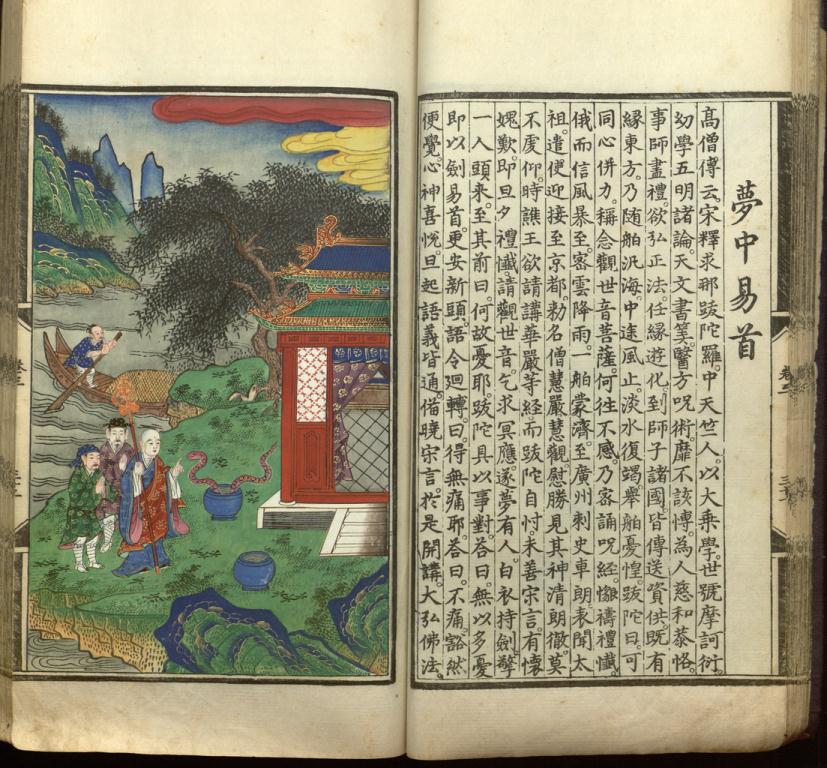 夢中易首
高僧傳云。宋釋求那跋陀羅。中天竺人。以大乘學。世號摩訶衍。
幼學五明諸論。天文書筭。醫方呪術。靡不該博。為人慈和恭恪。
事師盡禮。欲弘正法。任緣遊化。到師子諸國。皆傳送資供。既有
緣東方。乃随舶汎海。中途風止。淡水復竭。舉舶憂惶。跋陀曰。可
同心併力。稱念觀世音菩薩。何往不感。乃密誦呪經。懇禱禮懺。
俄而信風暴至。密雲降雨。一舶蒙濟。至廣州。刺史車朗表聞。太
祖。遣使迎接至京都。勅名僧慧嚴慧觀慰勞。見其神清朗徹。莫
不虔仰。時譙王欲請講華嚴等經。而跋陀自忖。未善宋言。有懷
愧歎。即旦夕禮懺。請觀世音。乞求冥應。遂夢有人。白衣持劍。擎
一人頭來。至其前曰。何故憂耶。跋陀具以事對。答曰。無以多憂
即以劍易首。更安新頭。語令廻轉。曰。得無痛耶。答曰。不痛。豁然
便覺。心神喜悅。旦起語義皆通。備曉宋言。於是開講。大弘佛法。